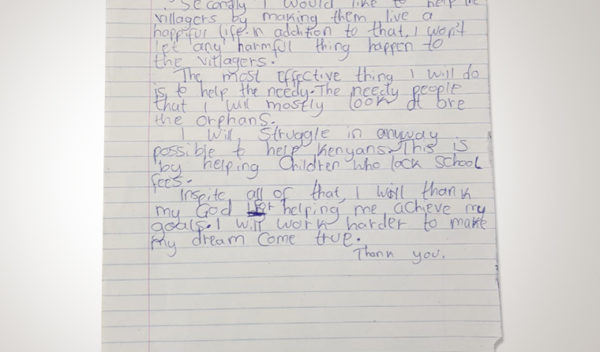 Secondly I would like to help the
villagers by making them live a
happiful life. In addition to that, I won't
let any harmful thing happen to
the villagers.
The most effective thing I will do
is to help the needy. The needy people
that I will mostly look at are
the orphans.
I will struggle in anyway
possible to help Kenyans. This is
by helping children who lack school
fees.
Inspite all of that, I will thank
my God for helping me achieve my
goals. I will work harder to make
my dream come true.
Thank you.